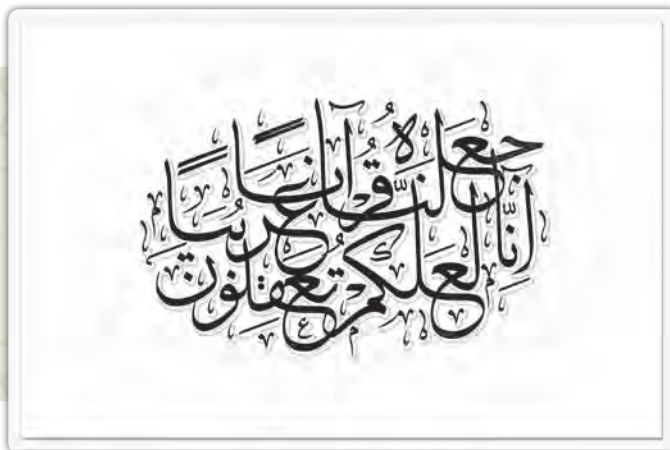 إِنَّا جعلناه قرآنًا عربيًا
لعلكم تعقلون